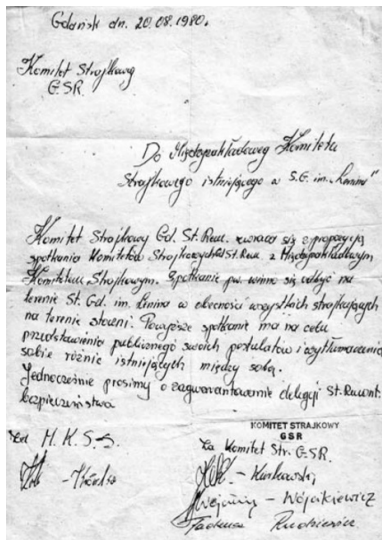 Gdańsk dn. 20.08.1980.
Komitet Strajkowy
G.SR.
Do Międzyzakładowego Komitetu
Strajkowego istniejącego w S.G. im. "Lenina"
Komitet Strajkowy Gd. St. Rem. zwraca się z propozycją
spotkania Komitetów Strajkowych St. Rem z Międzyzakładowym
Komitetem Strajkowym. Spotkanie pw. winno się odbyć na
terenie St. Gd. im. Lenina w obecności wszystkich strajkujących
na terenie stoczni. Powyższe spotkanie ma na celu
przedstawienie publicznego swoich postulatów i wytłumaczenia
sobie różnic istniejących między sobą.
Jednocześnie prosimy o zagwarantowanie delegacji St. Remont.
bezpieczeństwa
Za M.K.S.S.
KOMITET STRAJKOWY
GSR
Za Komitet Str. G.SR.
- Wójcikiewicz
Tadeusz